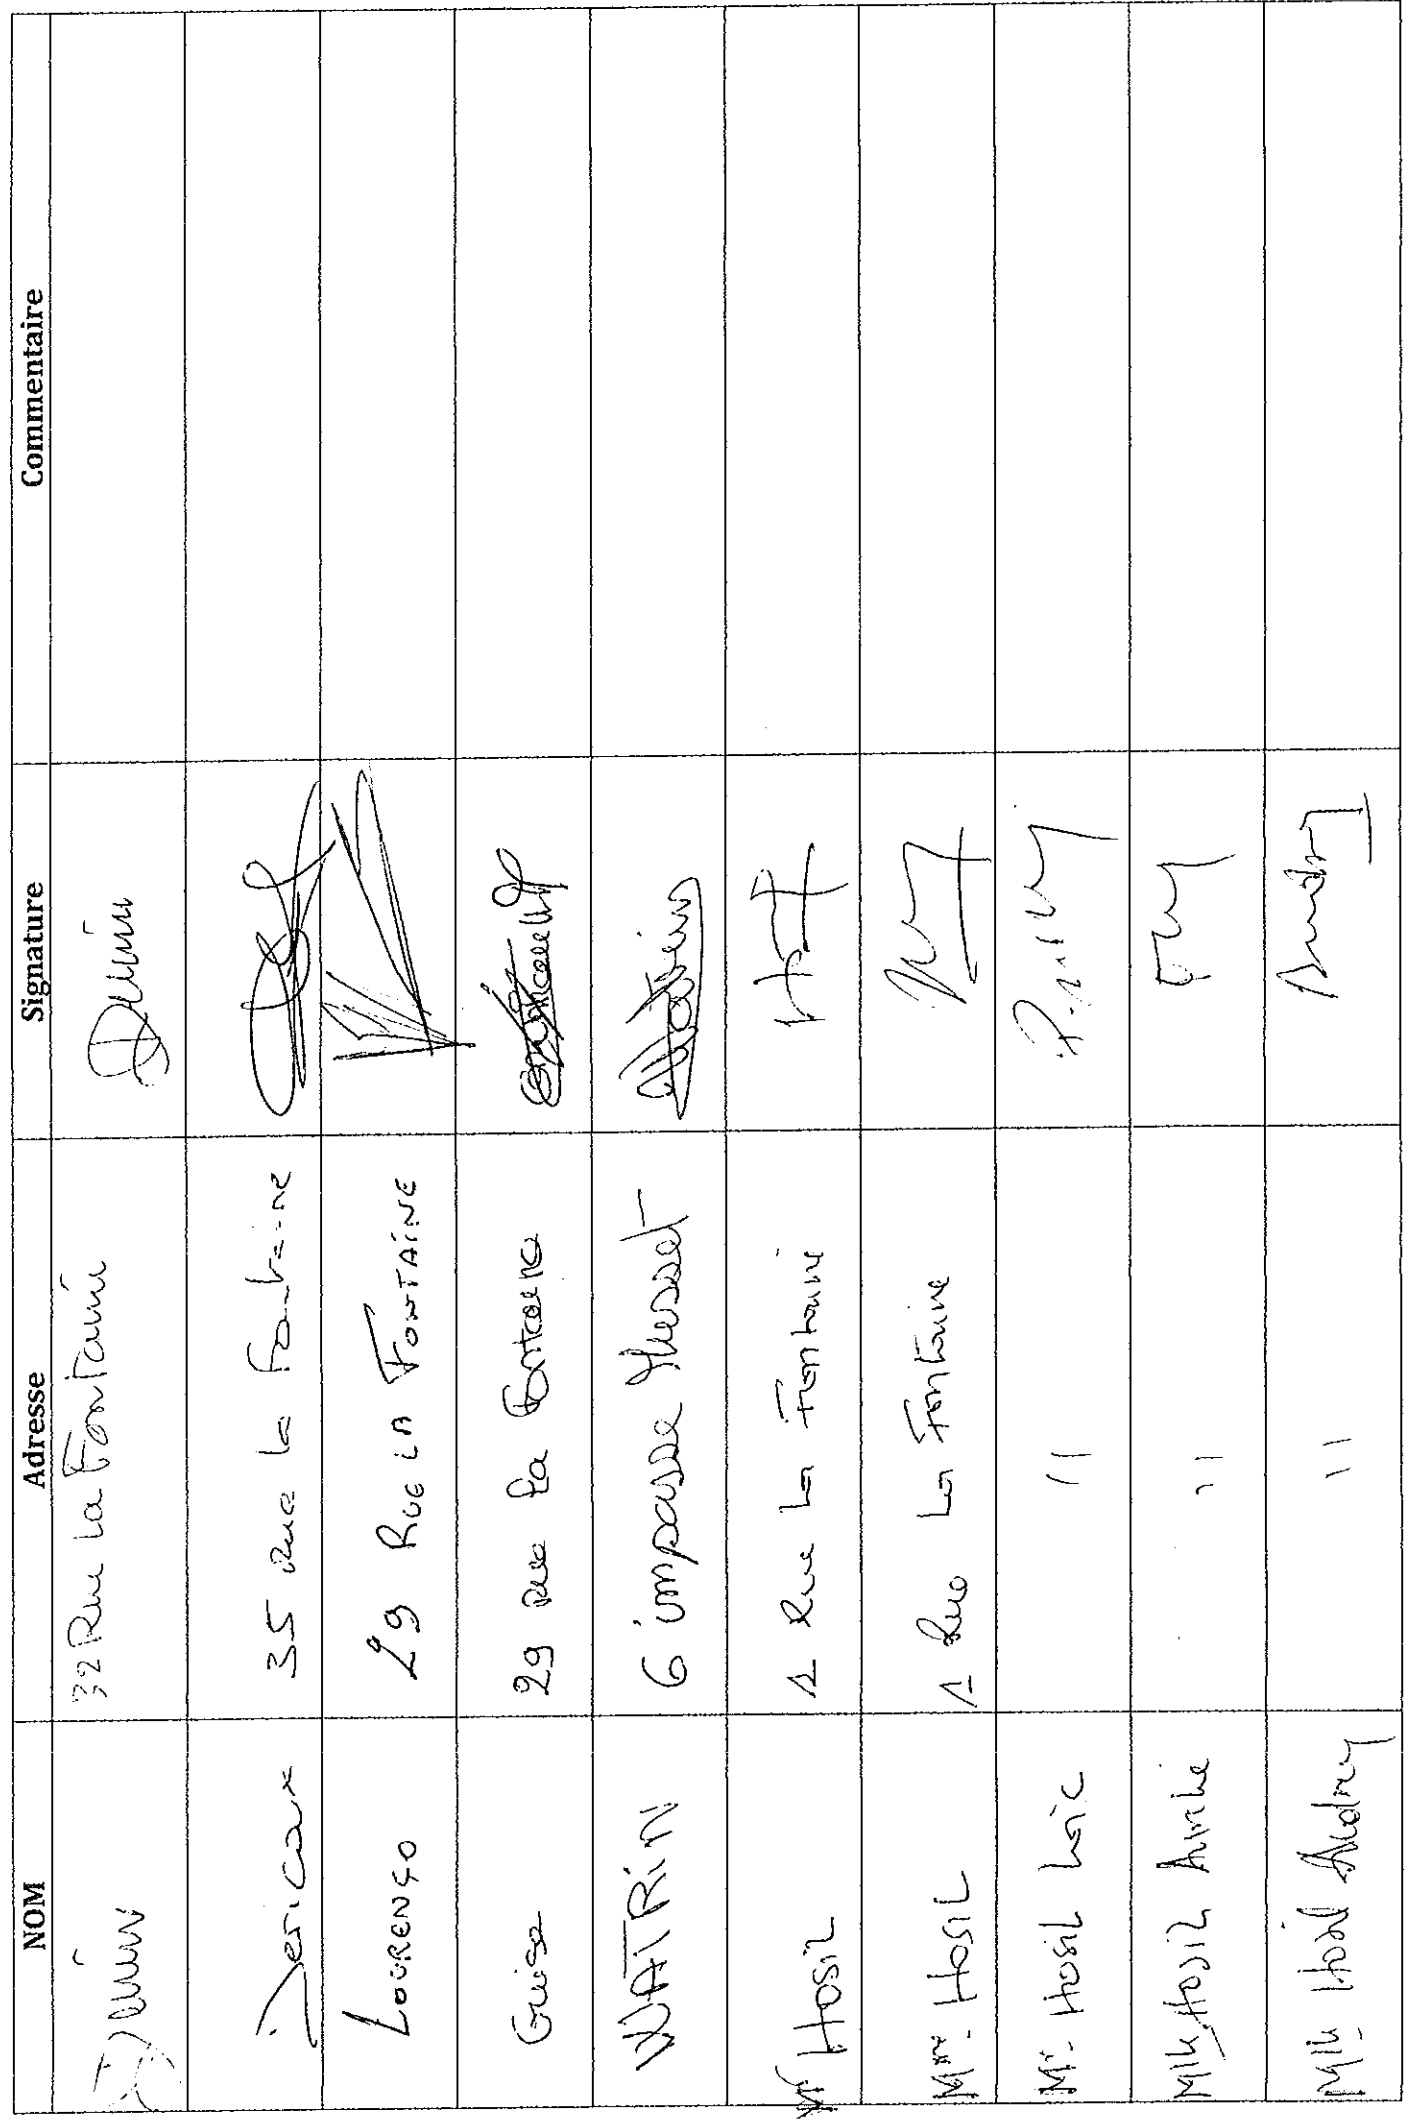 NOM Adresse Signature Commentaire
32 Rue La Fontaine
Jericox 35 Rue la Fontaine
LOURENÇO 29 RUE LA FONTAINE
Guise 29 rue la Fontaine
WATRIN 6 impasse Musset Watrin
Mr HOSIL 1 Rue La Fontaine
Mme HOSIL 1 Rue La Fontaine
Mr HOSIL Loïc "
Mlle HOSIL "
Mlle Hosil Audrey " Audrey